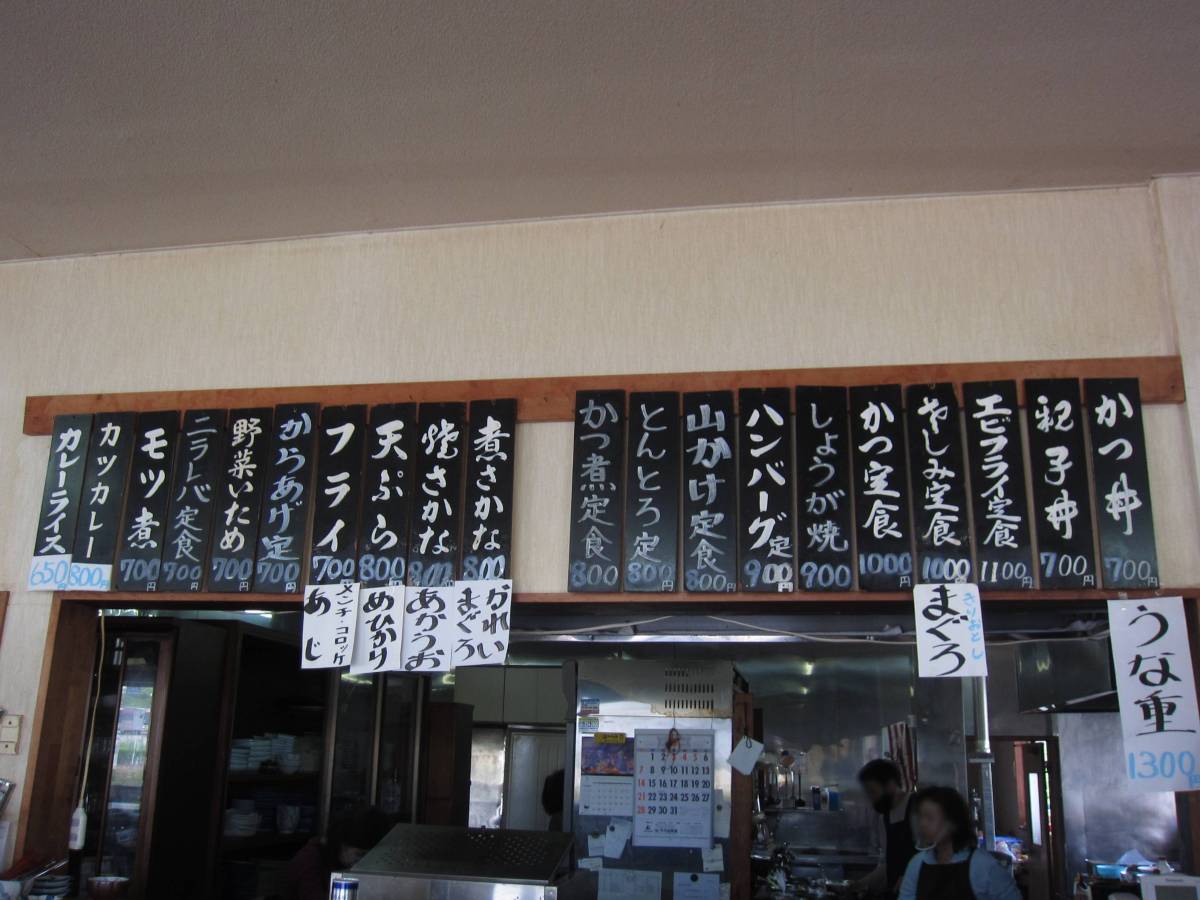 かつ丼
700円
親子丼
700円
エビフライ定食
1100円
さしみ定食
1000円
かつ定食
1000円
しょうが焼
900円
ハンバーグ定
900円
山かけ定食
800円
とんとろ定
800円
かつ煮定食
800
煮さかな
800
焼さかな
800
天ぷら
800
フライ
700円
からあげ定
700円
野菜いため
700円
ニラレバ定食
700円
モツ煮
700円
カツカレー
800円
カレーライス
650円
うな重
1300
きりおとし
まぐろ
かれい
まぐろ
あかうお
めひかり
メンチ・コロッケ
あじ
1 2 3 4 5 6
7 8 9 10 11 12 13
14 15 16 17 18 19 20
21 22 23 24 25 26 27
28 29 30 31